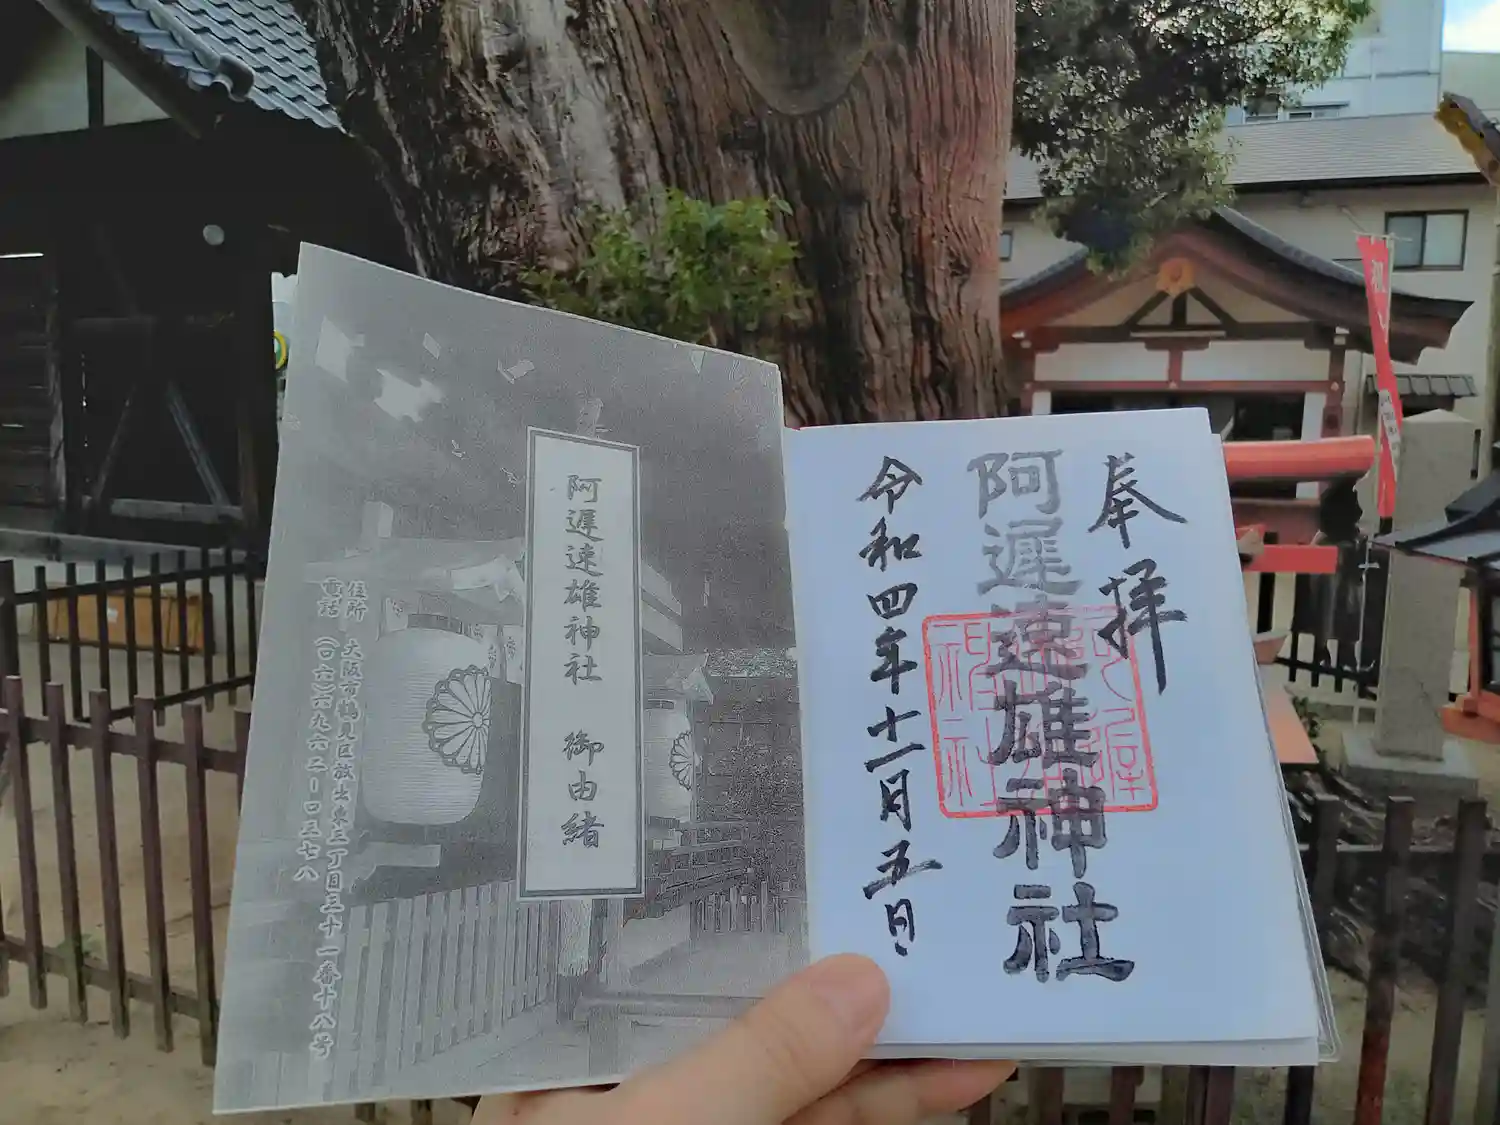 奉拝
阿遅速雄神社
令和四年十一月五日
阿遅速雄神社　御由緒
住所　大阪市鶴見区放出東三丁目三十一番十八号
電話　（〇六）六九六二ー〇三七八